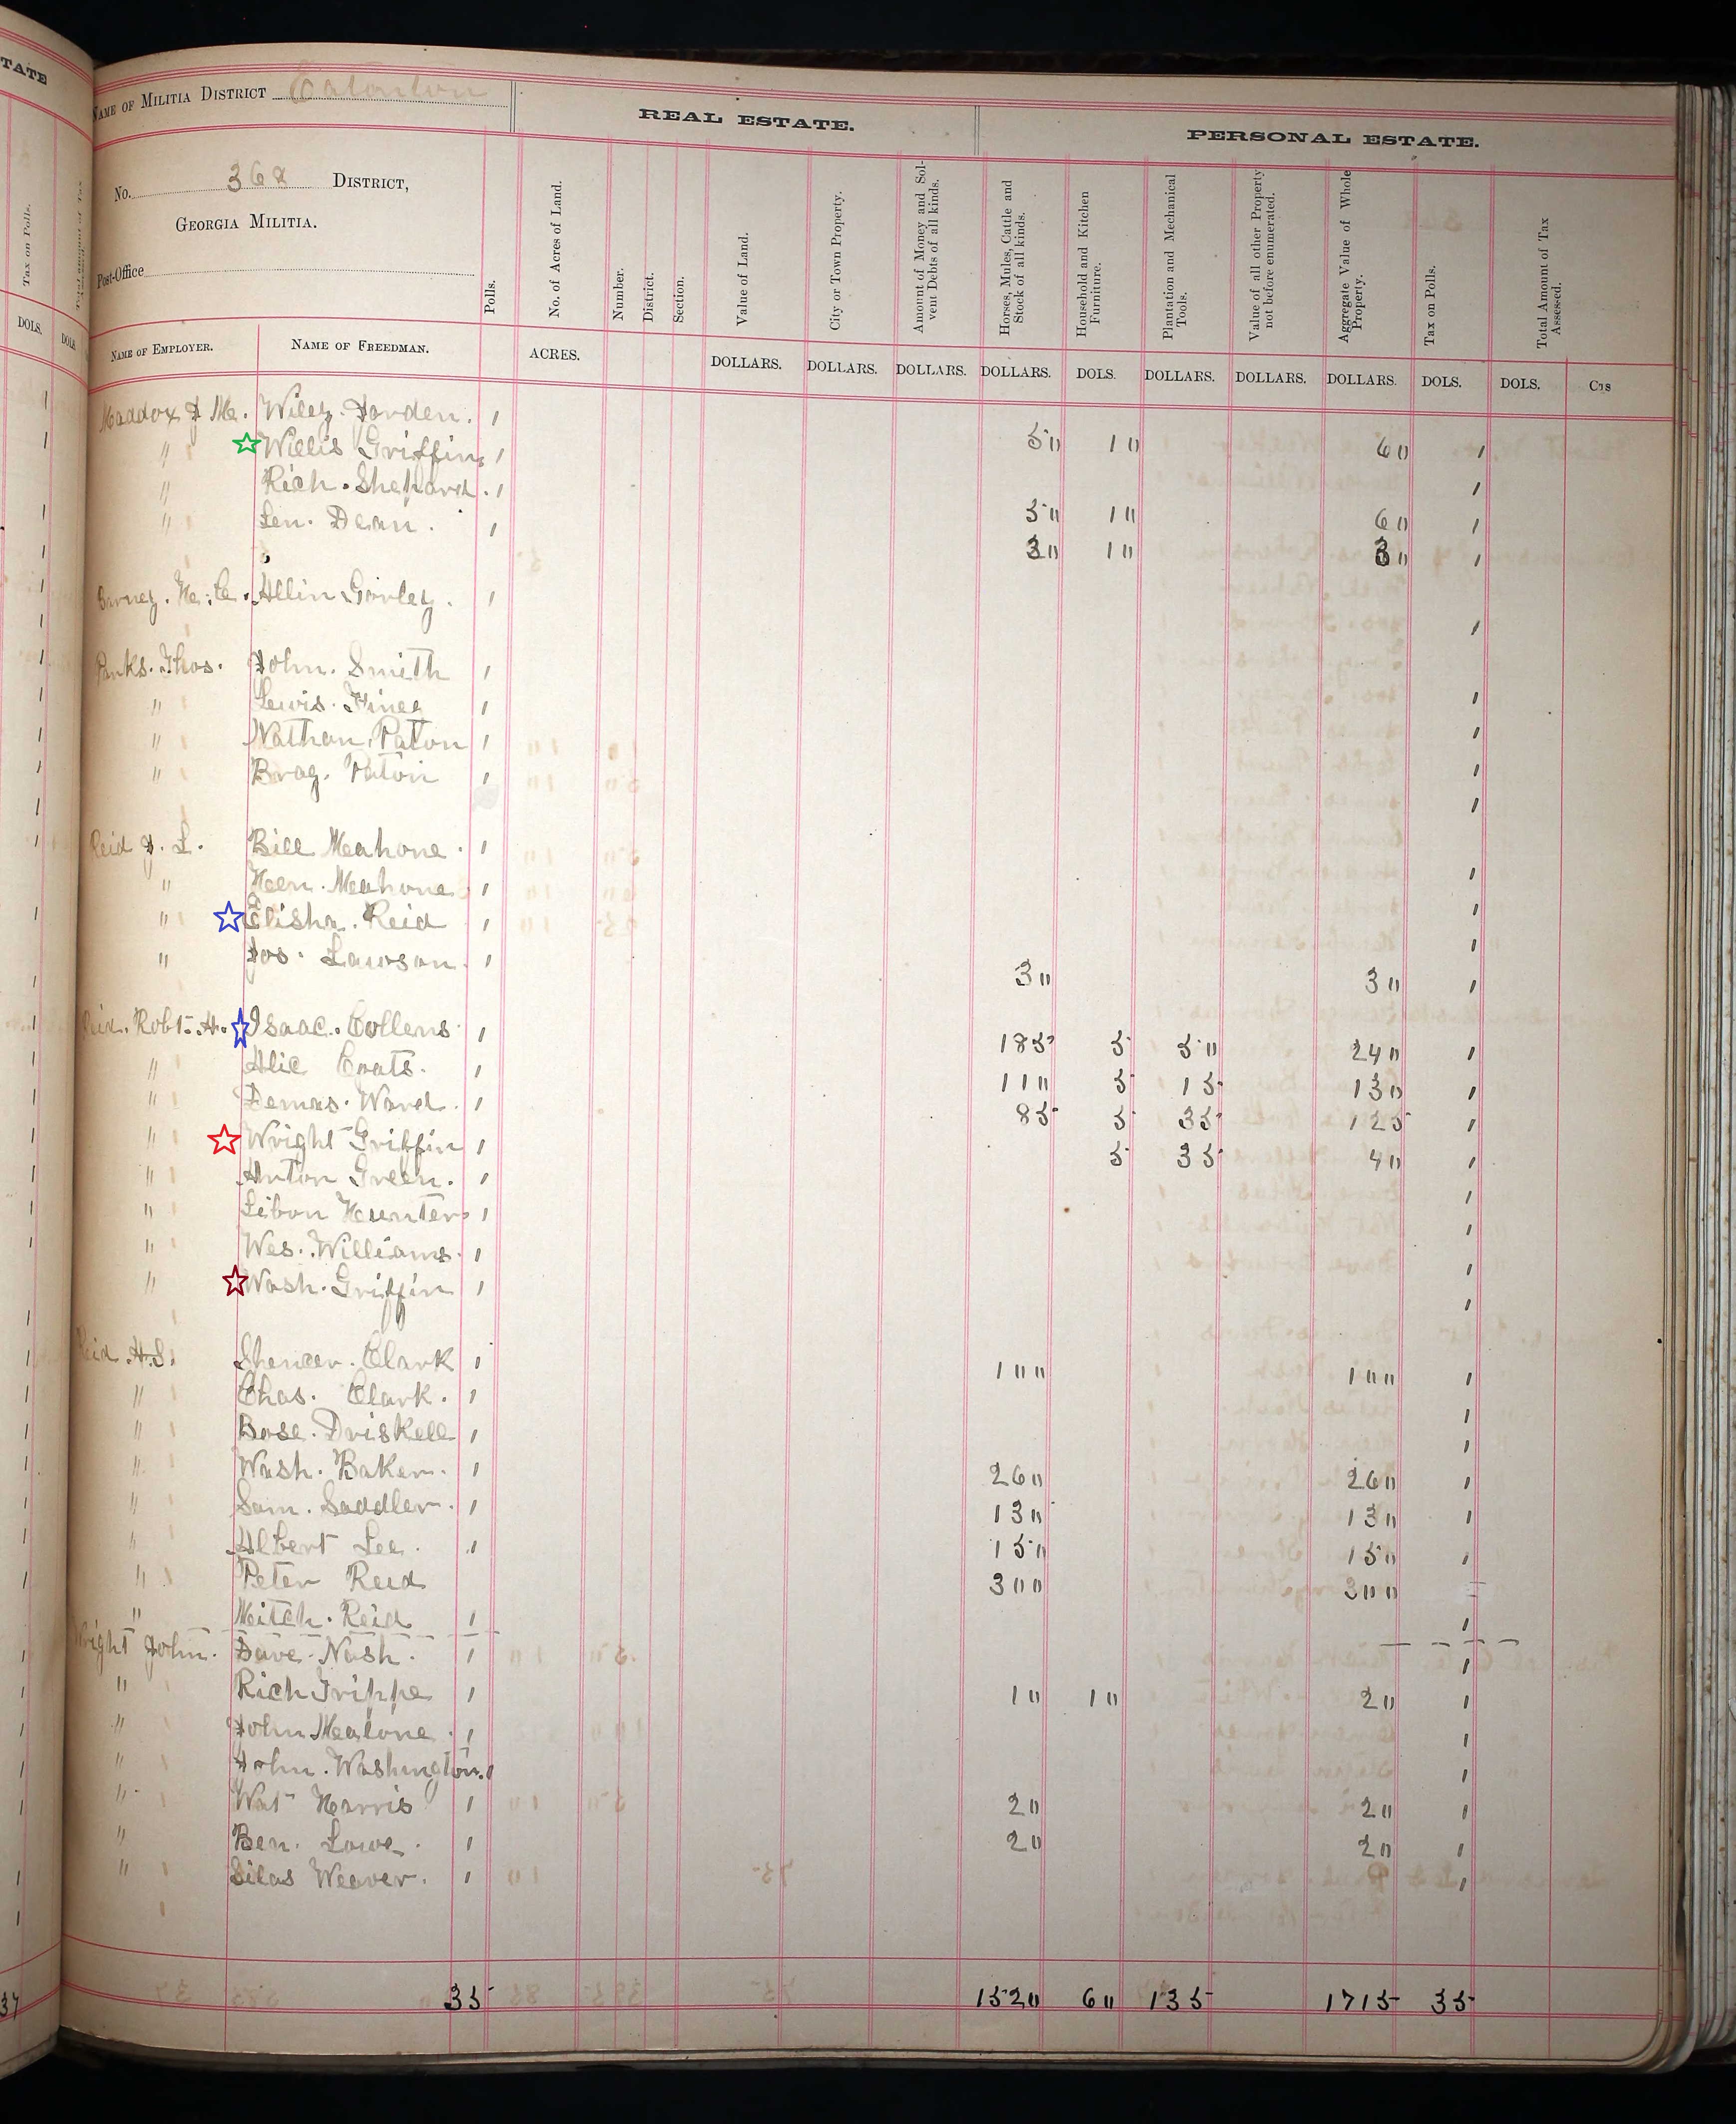 TATE
NAME OF MILITIA DISTRICT Eatonton
No. 368 DISTRICT,
GEORGIA MILITIA.
Post-Office
REAL ESTATE.
PERSONAL ESTATE.
Tax on Polls.
Polls.
No. of Acres of Land.
Number.
District.
Section.
Value of Land.
City or Town Property.
Amount of Money and Solvent Debts of all kinds.
Horses, Mules, Cattle and Stock of all kinds.
Household and Kitchen Furniture.
Plantation and Mechanical Tools.
Value of all other Property not before enumerated.
Aggregate Value of Whole Property.
Tax on Polls.
Total Amount of Tax Assessed.
DOLS. DOLS
NAME OF EMPLOYER. NAME OF FREEDMAN. ACRES. DOLLARS. DOLLARS. DOLLARS. DOLLARS. DOLS. DOLLARS. DOLLARS. DOLLARS. DOLS. DOLS. Cts
Maddox J Mc. Wiley. Jorden. 1
" Willis Griffin 1 50 10 60 1
" Rich. Shepard. 1 1
" Len. Dean. 1 50 10 60 1
30 10 30 1
Allin Gorley. 1 1
Panks. Thos. John. Smith 1
" Lewis. 1 1
" Nathan. Paton 1 1
" Brag. Paton 1 1
1
Reid J. L. Bill Mahone. 1
" Hen. Mahone 1 1
" Elisha. Reid 1 1
" Jos. Lawson. 1 1
30 30 1
Reid. Robt. H. Isaac. Collens 1
" Alic Coats. 1 185 5 50 240 1
" Demas. Ward. 1 110 5 15 130 1
" Wright Griffin 1 85 5 35 125 1
" Anton Green. 1 5 35 40 1
" Libon Hunter 1 1
" Wes. Williams. 1 1
" Wash. Griffin 1 1
1
Reid. H.S. Spencer. Clark 1 100 100 1
" Chas. Clark. 1 1
" Bose. Driskell 1 1
" Wash. Baker. 1 260 260 1
" Sam. Saddler. 1 130 130 1
" Albert Lee. 1 150 150 1
" Peter Reid 300 300
" Mitch. Reid 1 1
Wright John. Dave. Nash. 1 1
" Rich Trippe 1 10 10 20 1
" John Malone. 1 1
" John. Washington. 1 1
" Wat Harris 1 20 20 1
" Ben. Lowe. 1 20 20 1
" Silas Weaver. 1 1
37 35 1520 60 135 1715 35